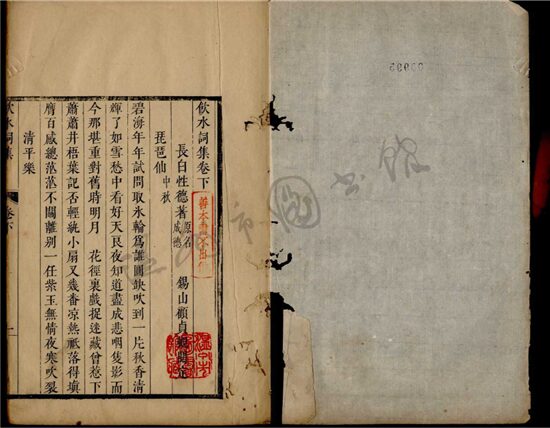 飲水詞集卷下
長白性德著 原名成德 錫山顧貞觀閱定
琵琶仙 中秋
碧海年年試問取氷輪為誰圓缺吹到一片秋香清
輝了如雪愁中看好天良夜知道盡成悲咽隻影而
今那堪重對舊時明月 花徑裏戲捉迷藏曾惹下
蕭蕭井梧葉記否輕紈小扇又幾番凉熱祗落得填
膺百感總茫茫不關離別一任紫玉無情夜寒吹裂
清平樂
飲水詞集 卷下 一
善本
市圖書館